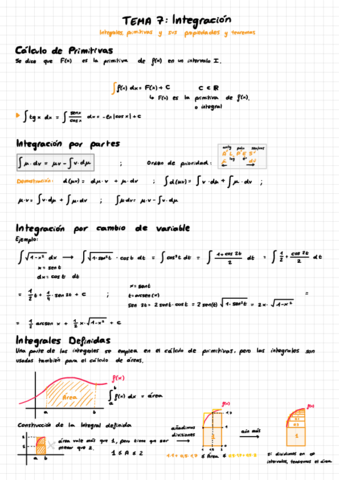 TEMA 7: Integración
Integrales, primitivas y sus propiedades y teoremas
Cálculo de Primitivas
Se dice que F(x) es la primitiva de f(x) en un intervalo I.
∫f(x) dx = F(x) + C        C ∈ ℝ
↳ F(x) es la primitiva de f(x),
o integral
∫tg x dx = ∫ senx/cosx dx = -ln|cosx| + C
Integración por partes
∫μ·dv = μv - ∫v·dμ ; Orden de prioridad:
Demostración: d(μv) = dμ·v + μ·dv ; ∫d(μv) = ∫v·dμ + ∫μ·dv ;
μ·v = ∫v·dμ + ∫μ·dv ; ∫μdv = μ·v - ∫v·dμ
Integración por cambio de variable
Ejemplo:
∫√1-x² dx → ∫√1-sen²t · cost dt = ∫cos²t dt = ∫ 1+cos2t/2 dt = ∫ 1/2 + cos2t/2 dt
x = sent
dx = cost dt
= 1/2 t + 1/4 · sen 2t + C ; x = sent
t = arcsen(x)
sen 2t = 2 sent · cost = 2 sen(t) √1-sen²t = 2x · √1-x² =
= 1/2 arcsen x + 1/2 x · √1-x² + C
Integrales Definidas
Una parte de las integrales se emplea en el cálculo de primitivas, pero las integrales son
usadas también para el cálculo de áreas.
f(x)
Área
a b
∫ f(x) dx = área
Construcción de la integral definida
área vale más que 1, pero tiene que ser
menor que 2.
1 ≤ A ≤ 2
a b
añadimos
divisiones
f(x)
aún más
f(x)
si dividimos en
intervalos, tenemos el área.